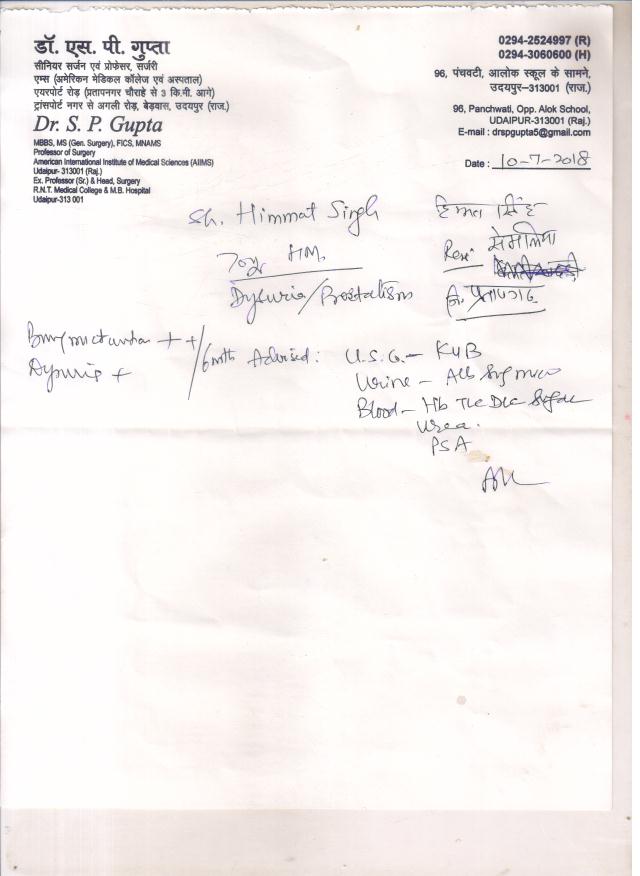 डॉ. एस. पी. गुप्ता
सीनियर सर्जन एवं प्रोफेसर, सर्जरी
एम्स (अमेरिकन मेडिकल कॉलेज एवं अस्पताल)
एयरपोर्ट रोड़ (प्रतापनगर चौराहे से 3 कि.मी. आगे)
ट्रांसपोर्ट नगर से अगली रोड़, बेड़वास, उदयपुर (राज.)
Dr. S. P. Gupta
MBBS, MS (Gen. Surgery), FICS, MNAMS
Professor of Surgery
American International Institute of Medical Sciences (AIIMS)
Udaipur- 313001 (Raj.)
Ex. Professor (Sr.) & Head, Surgery
R.N.T. Medical College & M.B. Hospital
Udaipur-313 001
0294-2524997 (R)
0294-3060600 (H)
96, पंचवटी, आलोक स्कूल के सामने,
उदयपुर–313001 (राज.)
96, Panchwati, Opp. Alok School,
UDAIPUR-313001 (Raj.)
E-mail : drspgupta5@gmail.com
Date : 10-7-2018
Sh. Himmat Singh
हिम्मत सिंह
Dysuria/Prostatism
Advised : U.S.G. - KUB
Urine - Alb Sug micro
Blood - Hb TLC DLC Sugar
Urea.
PSA